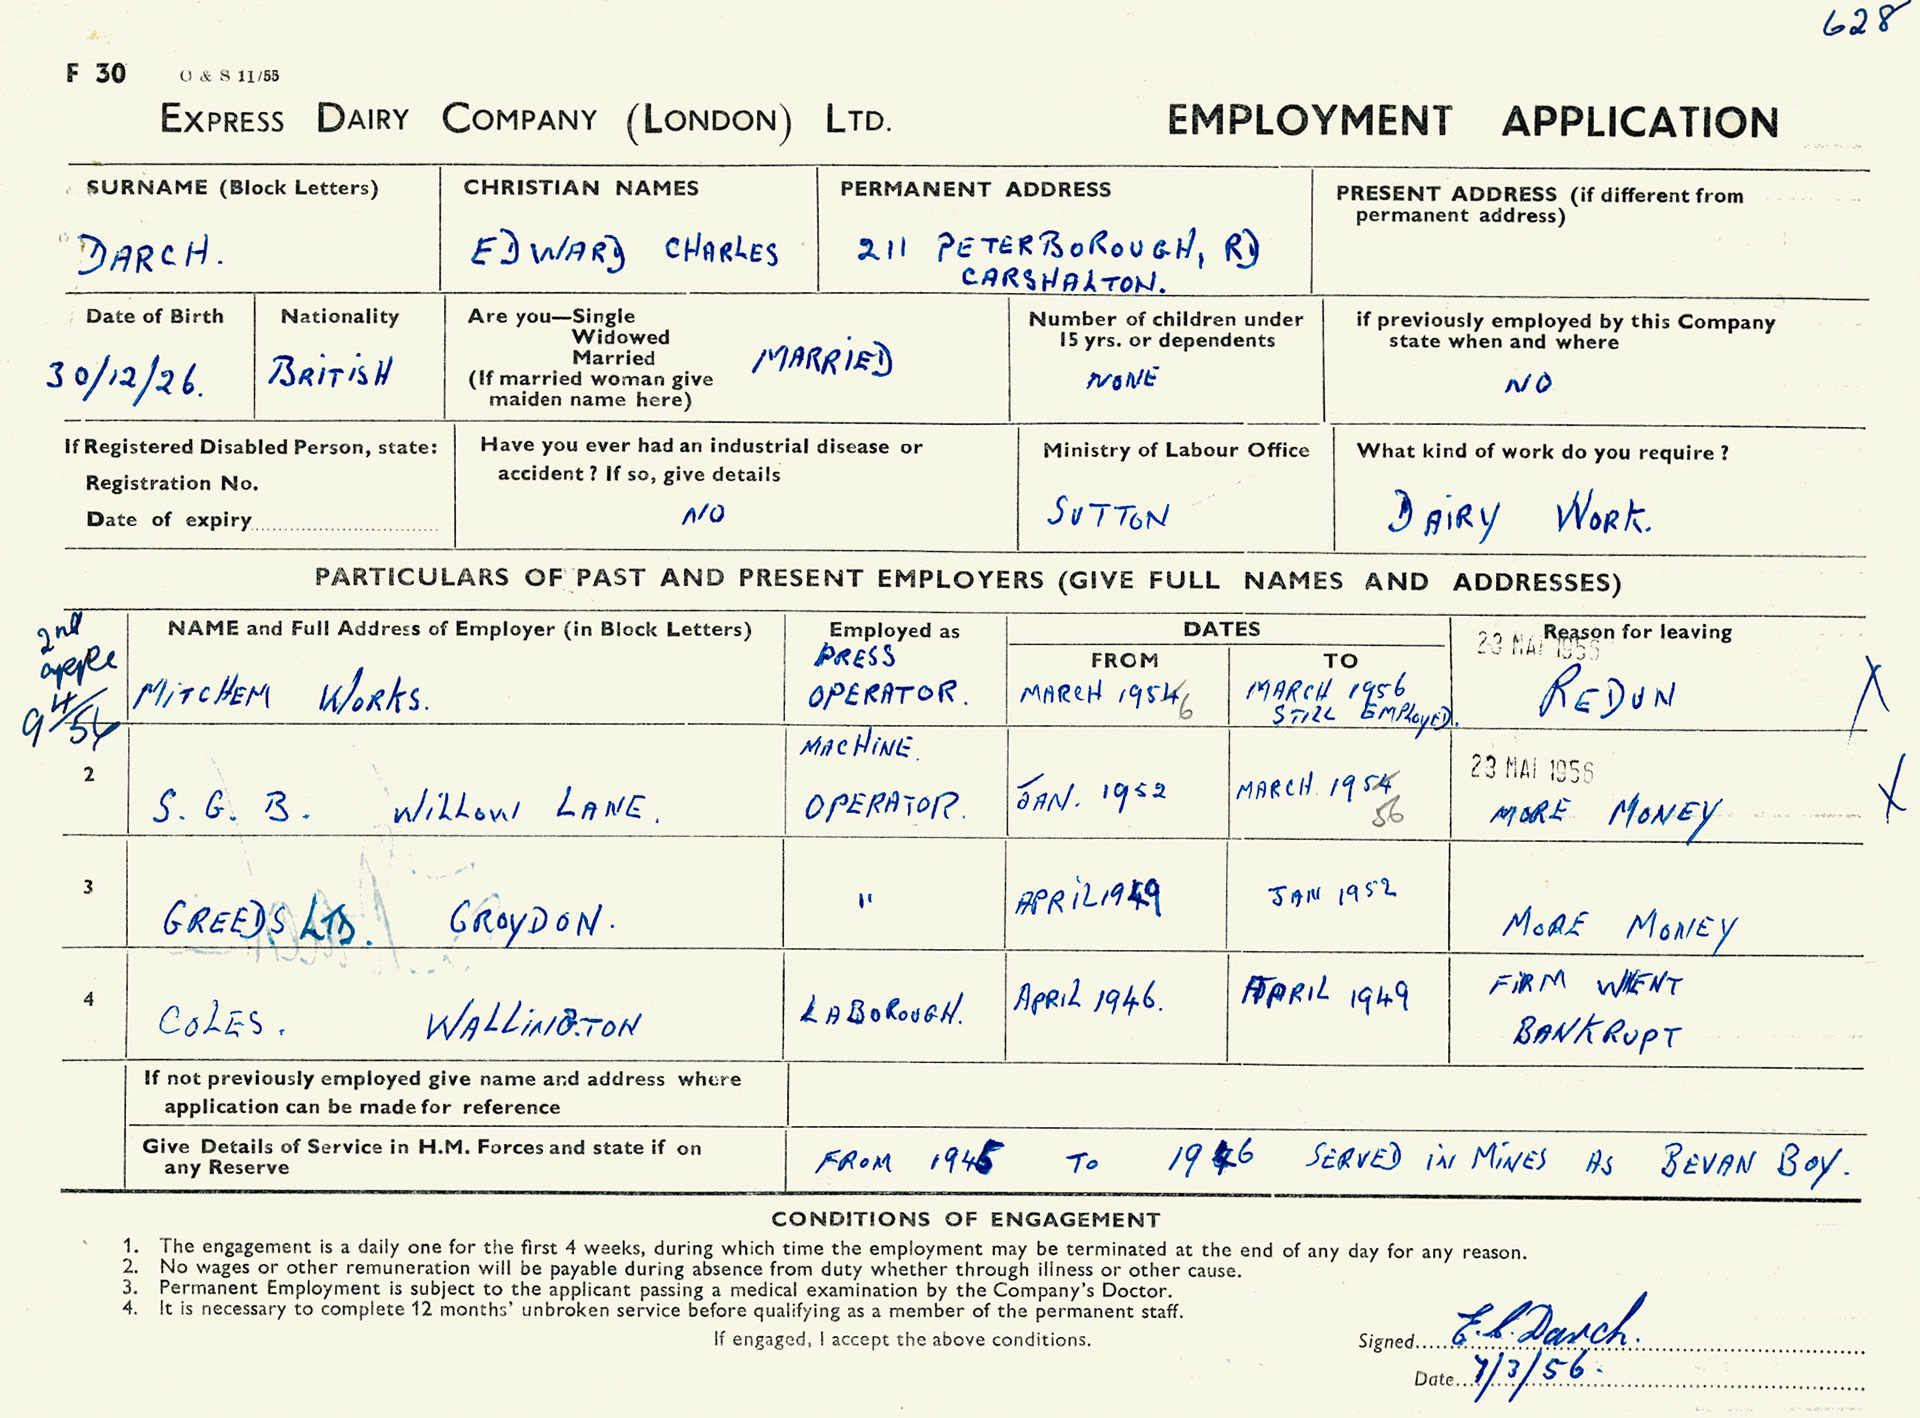 628
F 30 O & S 11/55
EXPRESS DAIRY COMPANY (LONDON) LTD. EMPLOYMENT APPLICATION
SURNAME (Block Letters)
DARCH.
CHRISTIAN NAMES
EDWARD CHARLES
PERMANENT ADDRESS
211 PETERBOROUGH, RD
CARSHALTON.
PRESENT ADDRESS (if different from
permanent address)
Date of Birth
30/12/26.
Nationality
BRITISH
Are you—Single
Widowed
Married
(If married woman give
maiden name here)
MARRIED
Number of children under
15 yrs. or dependents
NONE
if previously employed by this Company
state when and where
NO
If Registered Disabled Person, state:
Registration No.
Date of expiry
Have you ever had an industrial disease or
accident? If so, give details
NO
Ministry of Labour Office
SUTTON
What kind of work do you require?
DAIRY WORK.
PARTICULARS OF PAST AND PRESENT EMPLOYERS (GIVE FULL NAMES AND ADDRESSES)
NAME and Full Address of Employer (in Block Letters)
Employed as
DATES
FROM
TO
Reason for leaving
2nd
9 4/56
MITCHEM WORKS.
PRESS
OPERATOR.
MARCH 1954
6
MARCH 1956
STILL EMPLOYED.
23 MAI 1956
REDUN
X
2
S. G. B. WILLOW LANE.
MACHINE.
OPERATOR.
JAN. 1952
MARCH 1954
56
23 MAI 1956
MORE MONEY
X
3
GREEDS LTD. CROYDON.
"
APRIL 1949
JAN 1952
MORE MONEY
4
COLES. WALLINGTON
LABOROUGH.
APRIL 1946.
APRIL 1949
FIRM WHENT
BANKRUPT
If not previously employed give name and address where
application can be made for reference
Give Details of Service in H.M. Forces and state if on
any Reserve
FROM 1945 TO 1946 SERVED IN MINES AS BEVAN BOY.
CONDITIONS OF ENGAGEMENT
1. The engagement is a daily one for the first 4 weeks, during which time the employment may be terminated at the end of any day for any reason.
2. No wages or other remuneration will be payable during absence from duty whether through illness or other cause.
3. Permanent Employment is subject to the applicant passing a medical examination by the Company's Doctor.
4. It is necessary to complete 12 months' unbroken service before qualifying as a member of the permanent staff.
If engaged, I accept the above conditions.
Signed E. C. Darch.
Date 7/3/56.